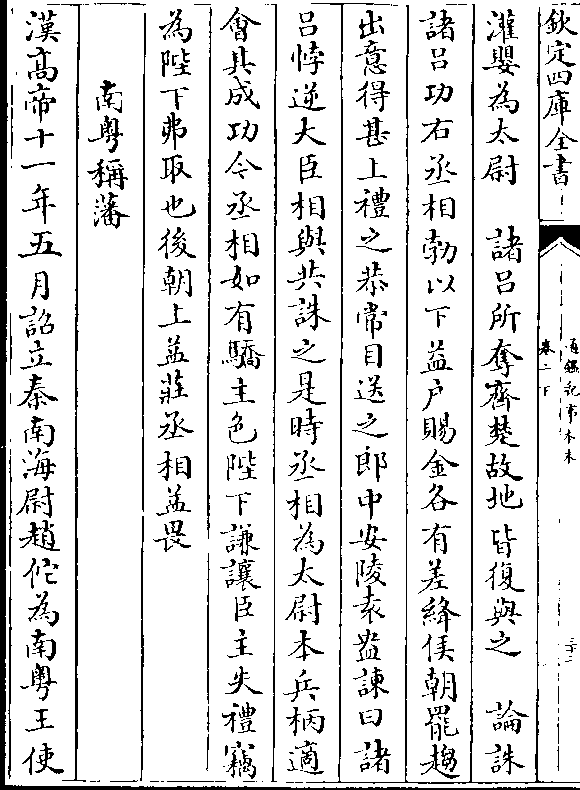 欽定四庫全書
通鑑紀事本末
卷二下
三十二
灌嬰為太尉　諸呂所奪齊楚故地皆復與之　論誅
諸呂功右丞相勃以下益戶賜金各有差絳侯朝罷趨
出意得甚上禮之恭常目送之郎中安陵袁盎諫曰諸
呂悖逆大臣相與共誅之是時丞相為太尉本兵柄適
會其成功今丞相如有驕主色陛下謙讓臣主失禮竊
為陛下弗取也後朝上益莊丞相益畏
南粵稱藩
漢高帝十一年五月詔立秦南海尉趙佗為南粵王使